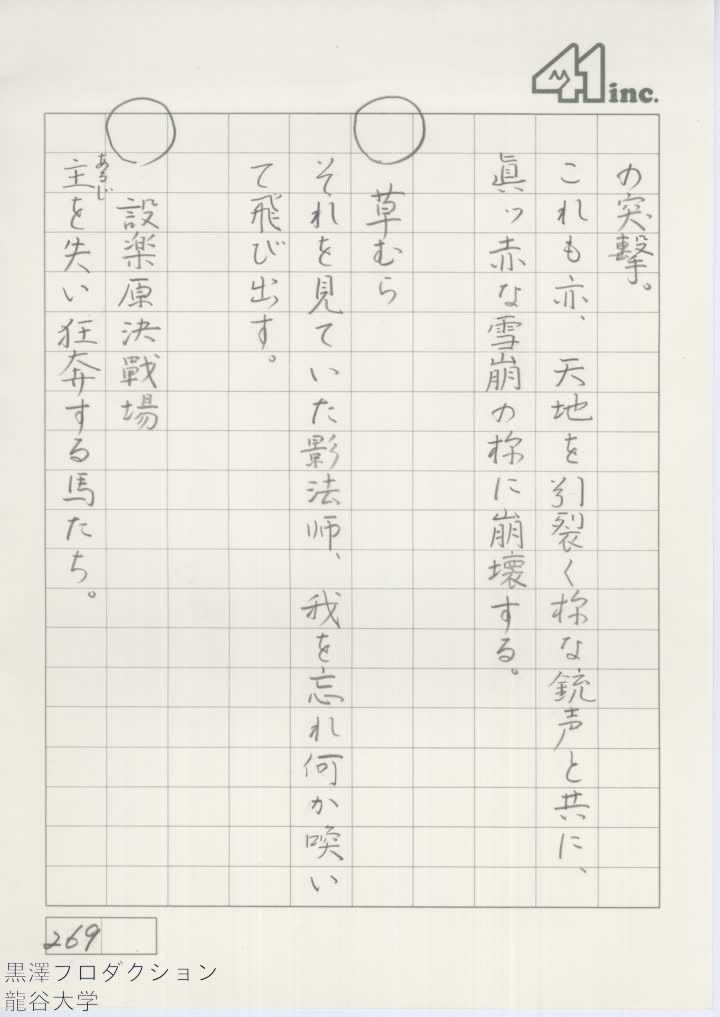 41 inc.
の突撃。
これも亦、天地を引裂く様な銃声と共に、
眞ッ赤な雪崩の様に崩壊する。
草むら
それを見ていた影法師、我を忘れ何か喚い
て飛び出す。
設楽原決戰場
主を失い狂奔する馬たち。
あるじ
269
黒澤プロダクション
龍谷大学